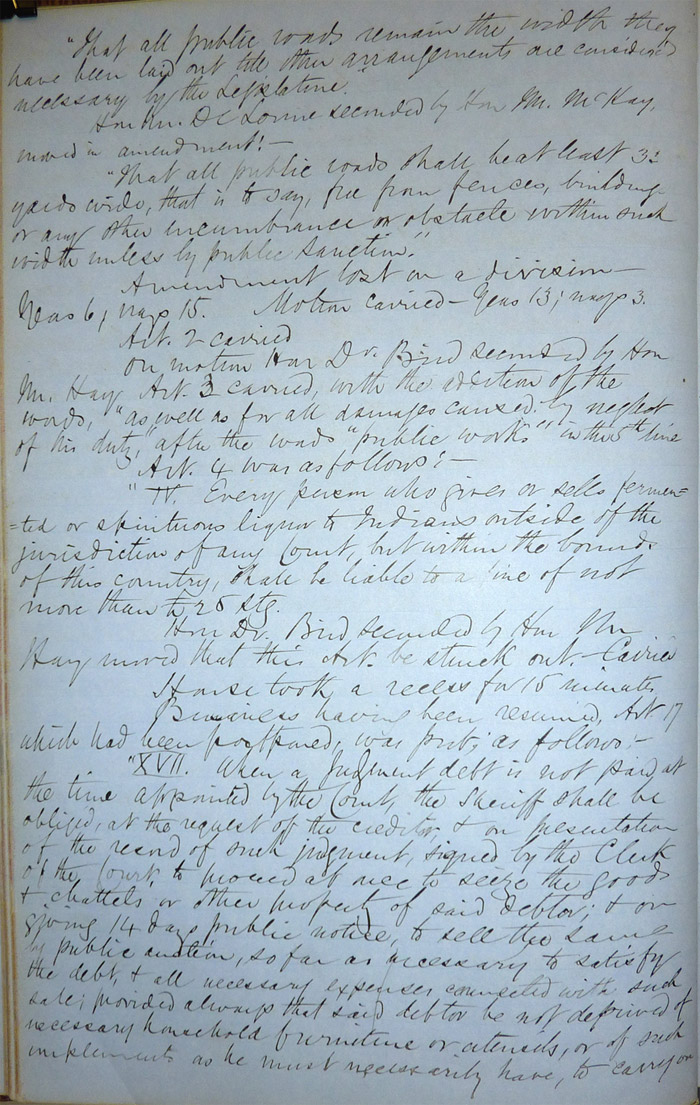 "That all public roads remain the width they
have been laid out till other arrangements are considered
necessary by the Legislature."
Hon. Mr. De Lorme seconded by Hon Mr. McKay,
moved in amendment:-
"That all public roads shall be at least 32
yards wide, that is to say, free from fences, buildings
or any other incumbrance or obstacle within such
width unless by public sanction."
Amendment lost on a division -
Yeas 6; nays 15. Motion carried - Yeas 13; nays 3.
Art. 2 carried
On motion Hon Dr. Bird seconded by Hon
Mr. Hay Art. 3 carried, with the addition of the
words, "as well as for all damages caused by neglect
of his duty," after the words "public works" in the 5th line
Art. 4 was as follows:-
"IV. Every person who gives or sells fermen=
=ted or spirituous liquor to Indians outside of the
jurisdiction of any Court, but within the bounds
of this country, shall be liable to a fine of not
more than £25 stg.
Hon Dr. Bird seconded by Hon Mr
Hay moved that this Art. be struck out. - Carried
House took a recess for 15 minutes
Business having been resumed, Art 17
which had been postponed, was put, as follows:-
"XVII. When a Judgment debt is not paid at
the time appointed by the Court, the Sheriff shall be
obliged, at the request of the creditor, & on presentation
of the record of such judgment, signed by the Clerk
of the Court, to proceed at once to seize the goods
& chattels or other property of said debtor; & on
giving 14 days public notice, to sell the same
by public auction, so far as necessary to satisfy
the debt, & all necessary expenses connected with such
sale; provided always that said debtor be not deprived of
necessary household furniture or utensils, or of such
implements as he must necessarily have, to carry on